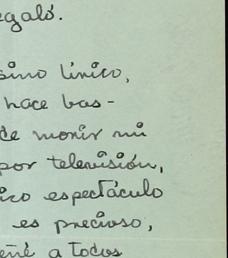 egaló.
simo lírico,
hace bas-
de morir mi
por televisión,
ico espectáculo
es precioso,
eñé a todos